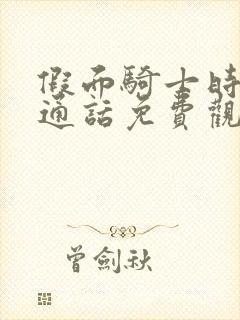 假面騎士時
通話免費觀
曾劍秋